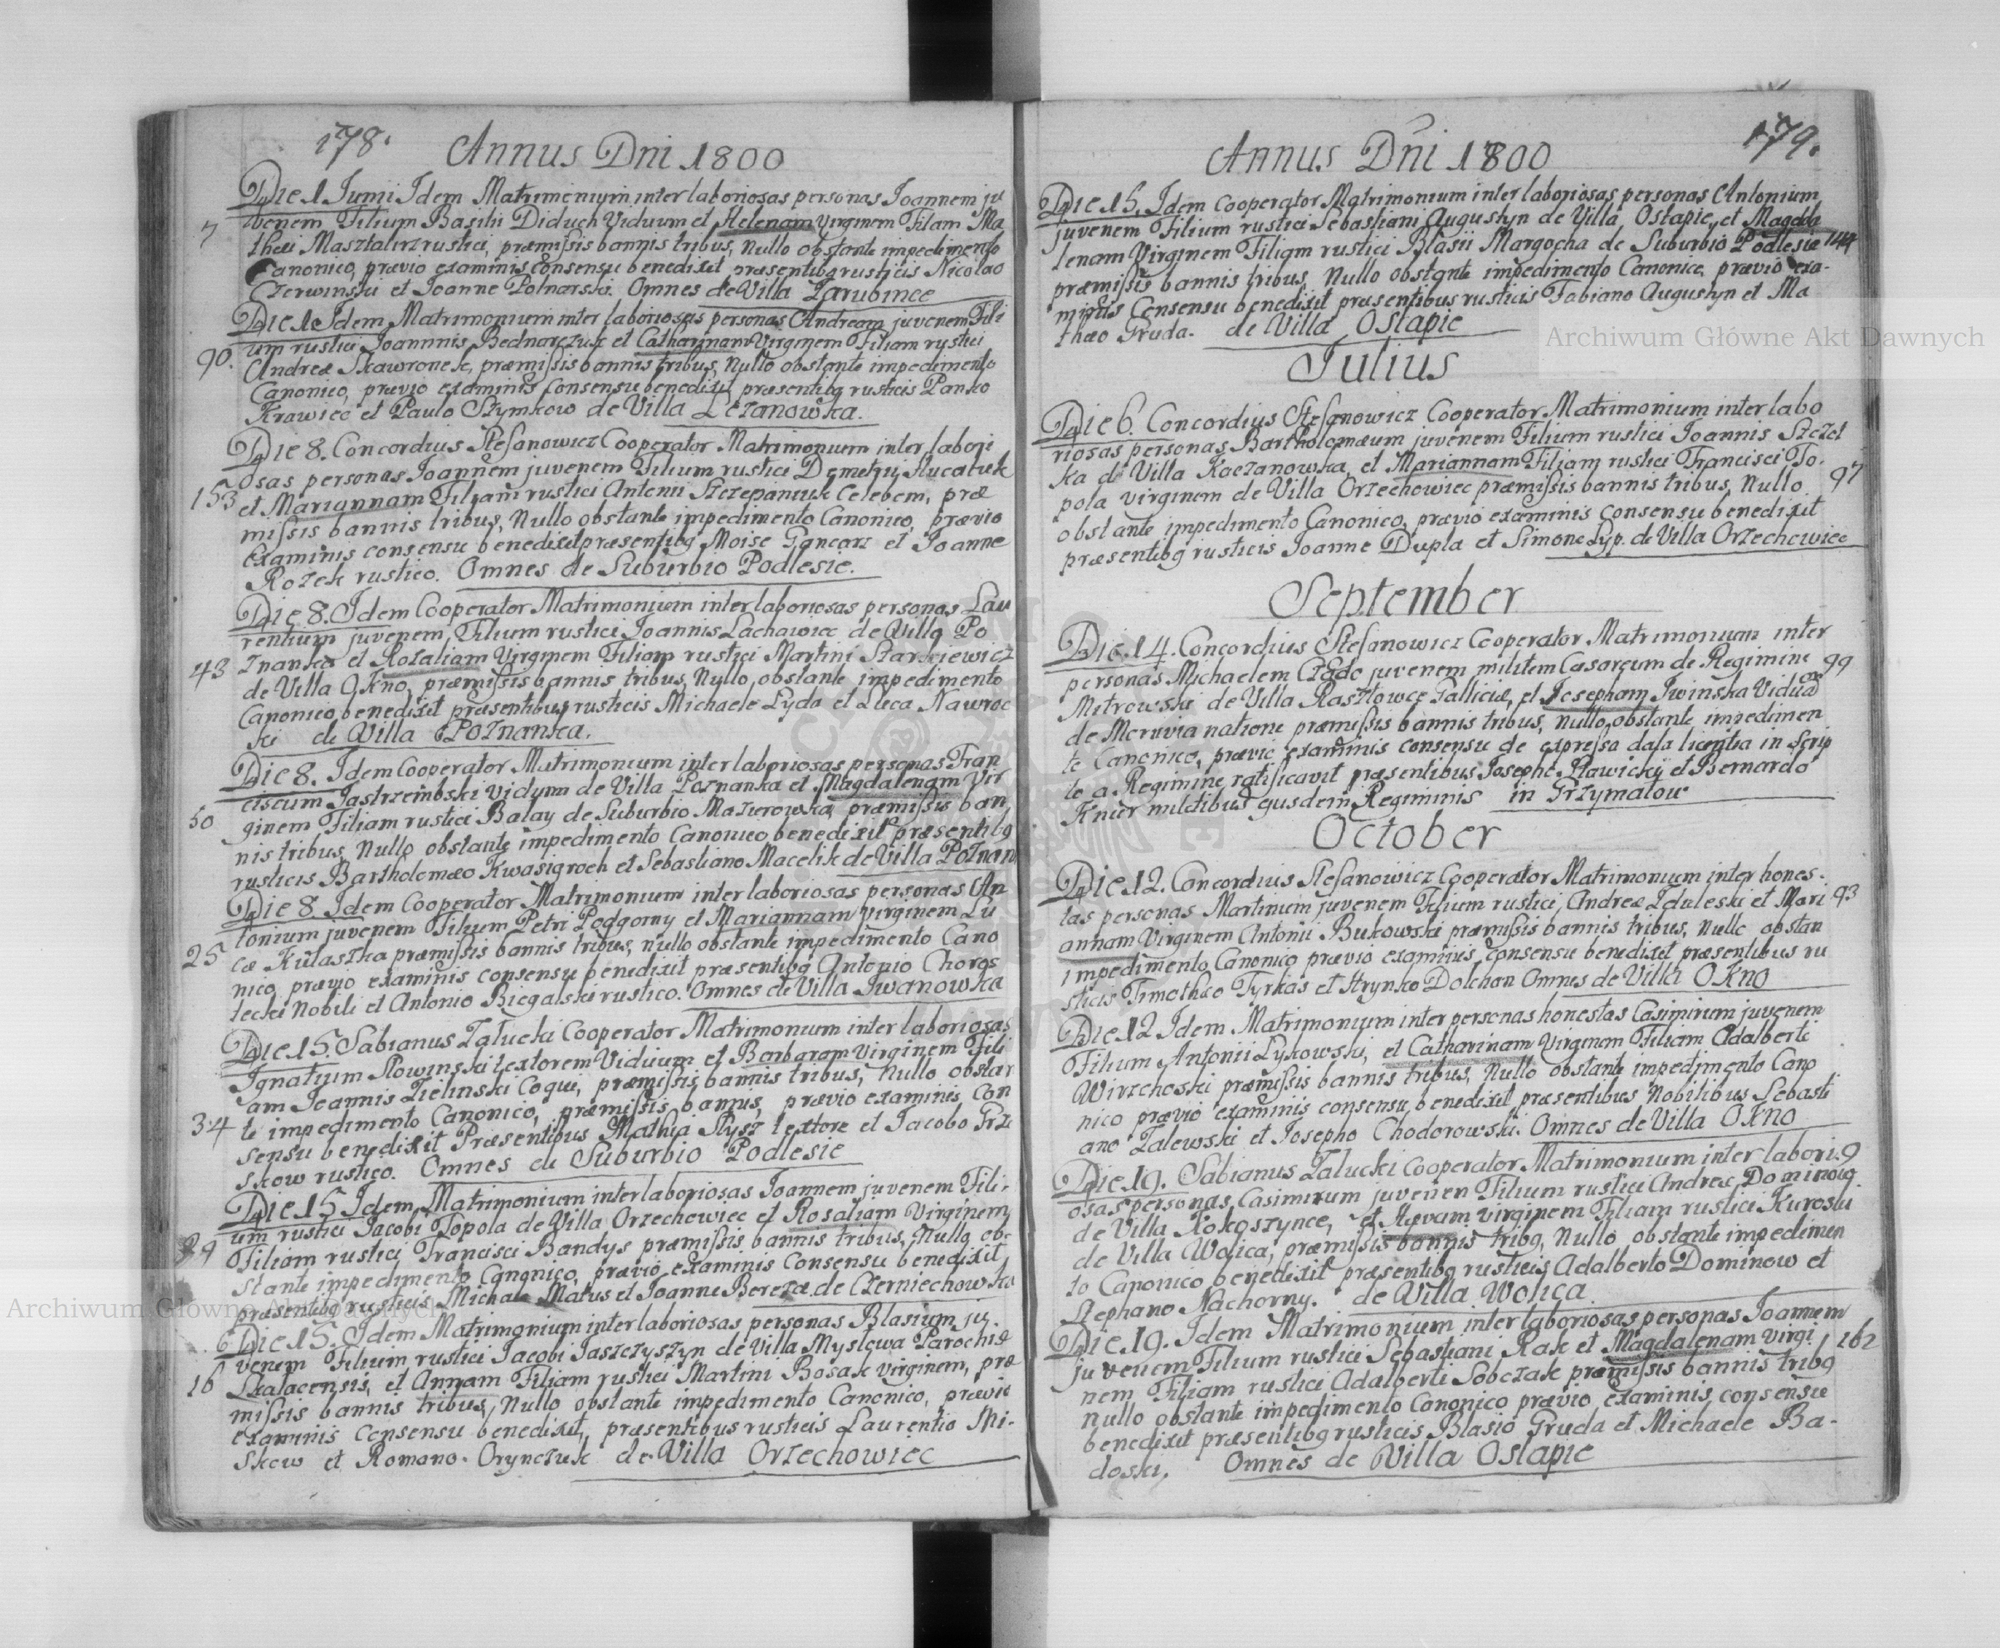 178.
Annus Dni 1800
Die 1 Junii Idem Matrimonium inter laboriosas personas Joannem ju
venem Filium Basilii Diduch Viduum et Helenam Virginem Filiam Ma
thæi Masztalirz rustici, præmissis bannis tribus, Nullo obstante impedimento
7
Canonico, prævio examinis consensu benedixit præsentibg rusticis Nicolao
Czerwinski et Joanne Polnarski. Omnes de Villa Zarubince
Die 1 Idem Matrimonium inter laboriosas personas Andream juvenem Fili
um rustici Joannnis Bednarczuk et Catharinam Virginem Filiam rustici
90.
Andreæ Skawronek, præmissis bannis tribus, Nullo obstante impedimento
Canonico, prævio examinis Consensu benedixit præsentibg rusticis Panko
Krawiec et Paulo Szymkow de Villa Lezanowka.
Die 8. Concordius Stefanowicz Cooperator Matrimonium inter labori
osas personas Joannem juvenem Filium rustici Demetry
153
et Mariannam Filiam rustici Antonii Szczepaniuk Celebem, præ
missis bannis tribus, Nullo obstante impedimento Canonico, prævio
examinis consensu benedixit præsentibg Moise Gancarz et Joanne
Rozek rustico. Omnes de Suburbio Podlesie.
Die 8. Idem Cooperator Matrimonium inter laboriosas personas Lau
rentium juvenem, Filium rustici Joannis Lachawiec de Villa Po
43
znanka et Rozaliam Virginem Filiam rustici Martini Starkiewicz
de Villa Okno, præmissis bannis tribus, Nullo, obstante impedimento
Canonico benedixit præsentibus rusticis Michaele Lyda et Luca Nawroc
ki de Villa Poznanka.
Die 8. Idem Cooperator Matrimonium inter laboriosas personas Fran
ciscum Jastrzembski Viduum de Villa Poznanka et Magdalenam Vir
50
ginem Filiam rustici Balay de Suburbio Mazurowka, præmissis ban,
nis tribus, Nullo obstante impedimento Canonico benedixit præsentibg
rusticis Bartholomæo Kwasigroch et Sebastiano Macelik de Villa Poznan
Die 8 Idem Cooperator Matrimonium inter laboriosas personas An
tonium juvenem Filium Petri Podgorny et Mariannam virginem Lu
25
cæ Kulaszka præmissis bannis tribus, nullo obstante impedimento Cano
nico, prævio examinis consensu benedixit præsentibg Antonio Choros
tecki Nobili et Antonio Biegalski rustico. Omnes de Villa Iwanowka
Die 15. Sabianus Zalucki Cooperator Matrimonium inter laboriosas
Ignatium Rowinski textorem Viduum et Barbaram Virginem Fili
am Joannis Zielinski Coqui, præmissis bannis tribus, Nullo obstan
34
te impedimento Canonico, præmissis bannis, prævio examinis, Con
sensu benedixit Præsentibus Mathia Slysz textore et Jacobo Grze
skow rustico. Omnes de Suburbio Podlesie
Die 15 Idem Matrimonium inter laboriosas Joannem juvenem Fili-
um rustici Jacobi Topola de Villa Orzechowiec et Rosaliam Virginem
89
Filiam rustici Francisci Bandys præmissis bannis tribus, Nullo ob-
stante impedimento Canonico, prævio examinis Consensu benedixit,
præsentibg rusticis Michale Matus et Joanne Berezæ de Czerniechowka
Die 15. Idem Matrimonium inter laboriosas personas Blasium ju-
venem Filium rustici Jacobi Jaszczyszyn de Villa Myslowa Parochiæ
16
Skalacensis, et Annam Filiam rustici Martini Bosak virginem, præ
missis bannis tribus, Nullo obstante impedimento Canonico, prævio
examinis Consensu benedixit, præsentibus rusticis Laurentio Mi-
skow et Romano Orynczuk de Villa Orzechowiec
179.
Annus Dni 1800
Die 15. Idem Cooperator Matrimonium inter laboriosas personas Antonium
juvenem Filium rustici Sebastiani Augustyn de Villa Ostapie, et Magda
lenam Virginem Filiam rustici Blasii Margocha de Suburbio Podlesie 144
præmissis bannis tribus, Nullo obstante impedimento Canonico, prævio exa-
minis Consensu benedixit præsentibus rusticis Fabiano Augustyn et Ma
thæo Gruda. de Villa Ostapie
Julius
Die 6. Concordius Stefanowicz Cooperator Matrimonium inter labo
riosas personas Bartholomæum juvenem Filium rustici Joannis Szczot
ka de Villa Kaczanowka, et Mariannam Filiam rustici Francisci To-
97
pola virginem de Villa Orzechowiec præmissis bannis tribus, Nullo
obstante impedimento Canonico, prævio examinis consensu benedixit
præsentibg rusticis Joanne Dupla et Simone Lyp. de Villa Orzechowiec
September
Die 14. Concordius Stefanowicz Cooperator Matrimonium inter
personas Michaelem juvenem militem Cæsareum de Regimine
99
Mitrowski de Villa Rasztowce Galliciæ, et Josepham Iwinska Viduam
de Moravia natione præmissis bannis tribus, nullo, obstante impedimen
to Canonico, prævio examinis consensu de expressa data licentia in scrip
to a Regimine ratificavit præsentibus Josepho Slawicky et Bernardo
Knier militibus ejusdem Regiminis in Grzymalow
October
Die 12. Concordius Stefanowicz Cooperator Matrimonium inter hones-
tas personas Martinum juvenem Filium rustici, Andreæ Zdaleski et Mari
93
annam Virginem Antonii Bukowski præmissis bannis tribus, Nullo obstan
impedimento Canonico prævio examinis, consensu benedixit præsentibus ru
sticis Timotheo Tyrkas et Hrynko Dolchan Omnes de Villa Okno
Die 12 Idem Matrimonium inter personas honestas Casimirum juvenem
Filium Antonii Lykowski, et Catharinam Virginem Filiam Adalberti
Wirzchoski præmissis bannis tribus, Nullo obstante impedimento Cano
nico prævio examinis consensu benedixit præsentibus Nobilibus Sebasti
ano Zalewski et Josepho Chodorowski. Omnes de Villa Okno
Die 19. Sabianus Zalucki Cooperator Matrimonium inter labori. 9
osas personas, Casimirum juvenen Filium rustici Andreæ Dominowg
de Villa Kokoszynce, et Hævam virginem Filiam rustici Kuroslu
de Villa Wolica, præmissis bannis tribg, Nullo obstante impedimen
to Canonico benedixit præsentibg rusticis Adalberto Dominow et
Stephano Nachorny. de Villa Wolica
Die 19. Idem Matrimonium inter laboriosas personas Joannem
juvenem Filium rustici Sebastiani Rak et Magdalenam Virgi
162
nem Filiam rustici Adalberti Sobczak præmissis bannis tribg
Nullo obstante impedimento Canonico prævio examinis consensu
benedixit præsentibg rusticis Blasio Gruda et Michaele Ba-
doski, Omnes de Villa Ostapie
Archiwum Główne Akt Dawnych
Archiwum Główne Akt Dawnych